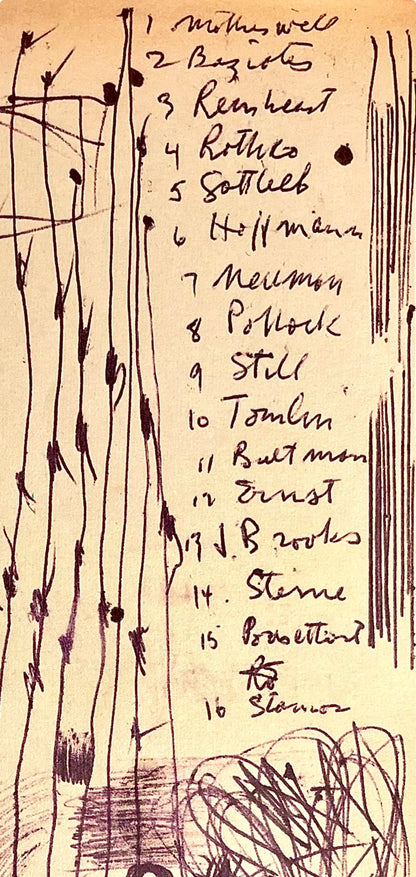 1 Motherwell
2 Baziotes
3 Reinheart
4 Rothko
5 Gottleib
6 Hoffmann
7 Newman
8 Pollock
9 Still
10 Tomlin
11 Bultman
12 Ernst
13 J. Brooks
14. Sterne
15
16 Stamos